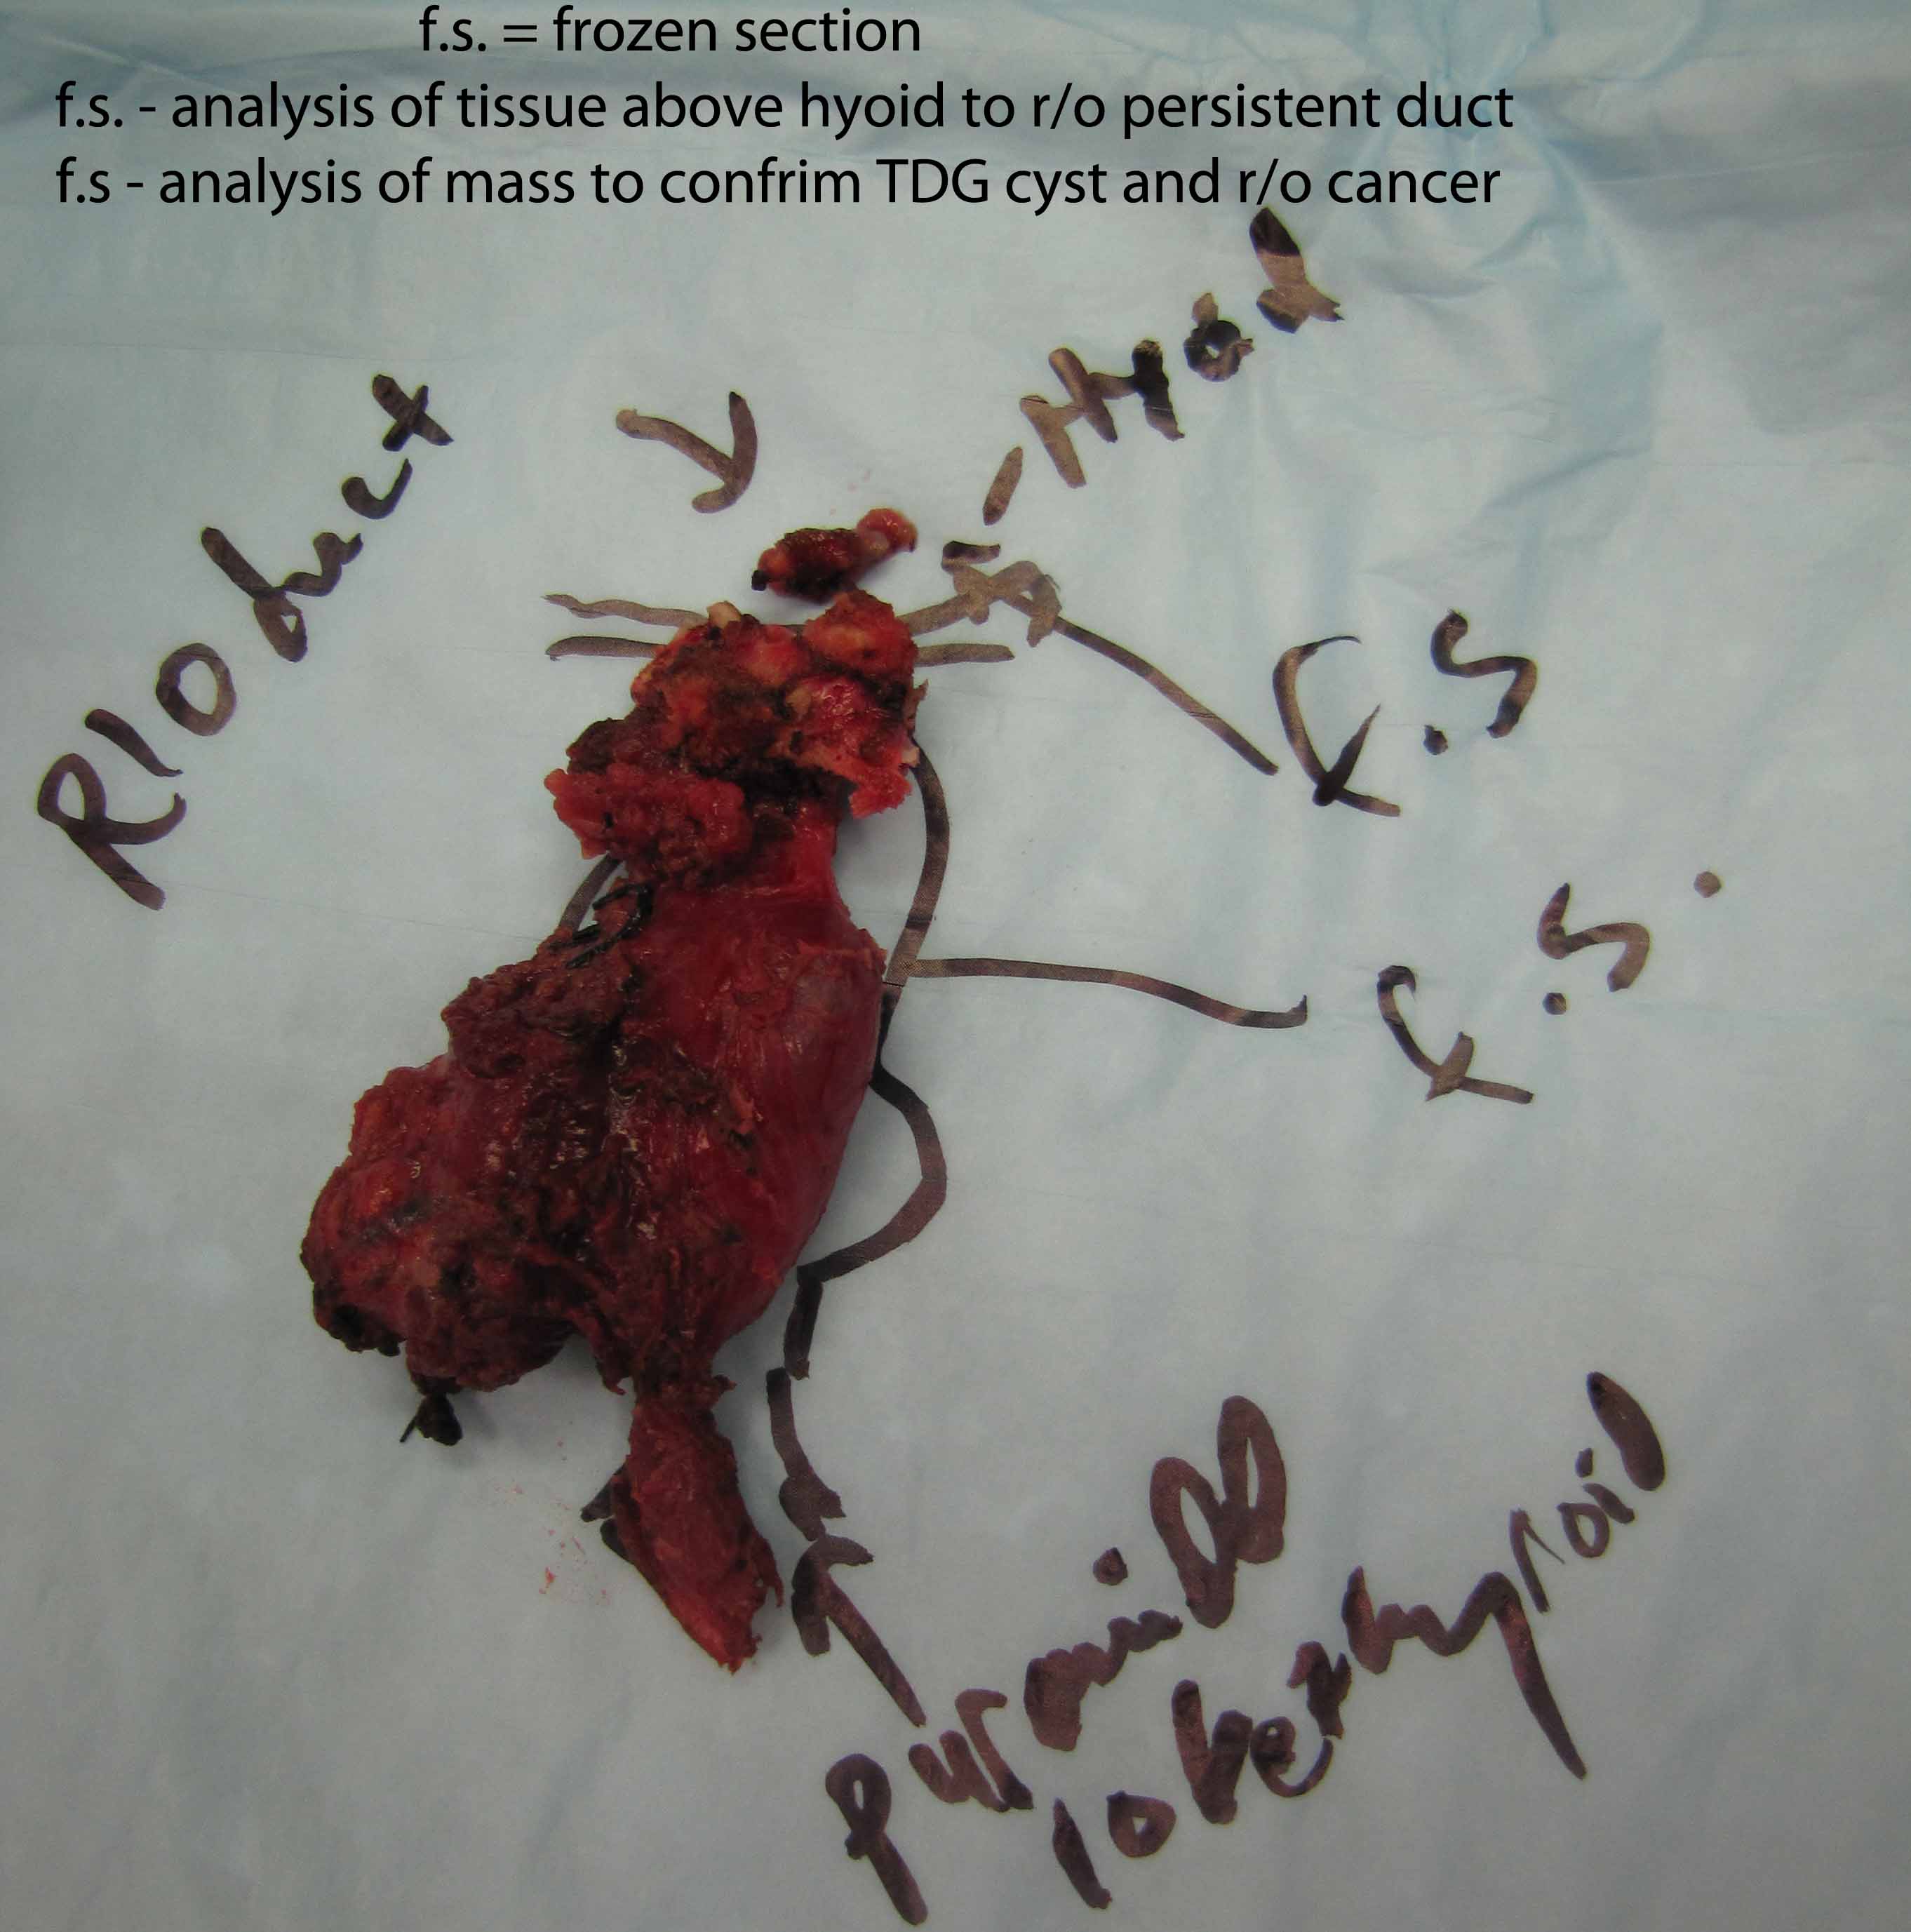 f.s. = frozen section
f.s. - analysis of tissue above hyoid to r/o persistent duct
f.s - analysis of mass to confrim TDG cyst and r/o cancer
Hyoid
R/O duct
F.S
F.S.
lobe thyroid